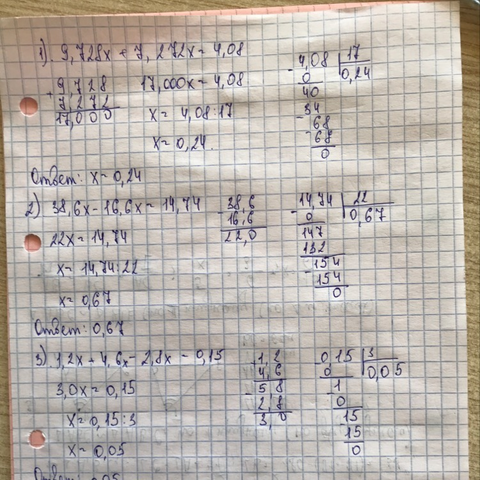 1). 9,728x + 7,272x = 4,08
+ 9,728
7,272
17,000
17,000x = 4,08
x = 4,08:17
x = 0,24.
- 4,08 | 17
0 | 0,24
40
34
- 68
68
0
Ответ: x = 0,24
2) 38,6x - 16,6x = 14,74
22x = 14,74
x = 14,74:22
x = 0,67
- 38,6
16,6
22,0
- 14,74 | 22
0 | 0,67
147
132
- 154
154
0
Ответ: 0,67
3). 1,2x + 4,6x - 2,8x = 0,15
3,0x = 0,15
x = 0,15:3
x = 0,05
+ 1,2
4,6
- 5,8
2,8
3,0
0,15 | 3
0 | 0,05
- 1
0
15
15
0